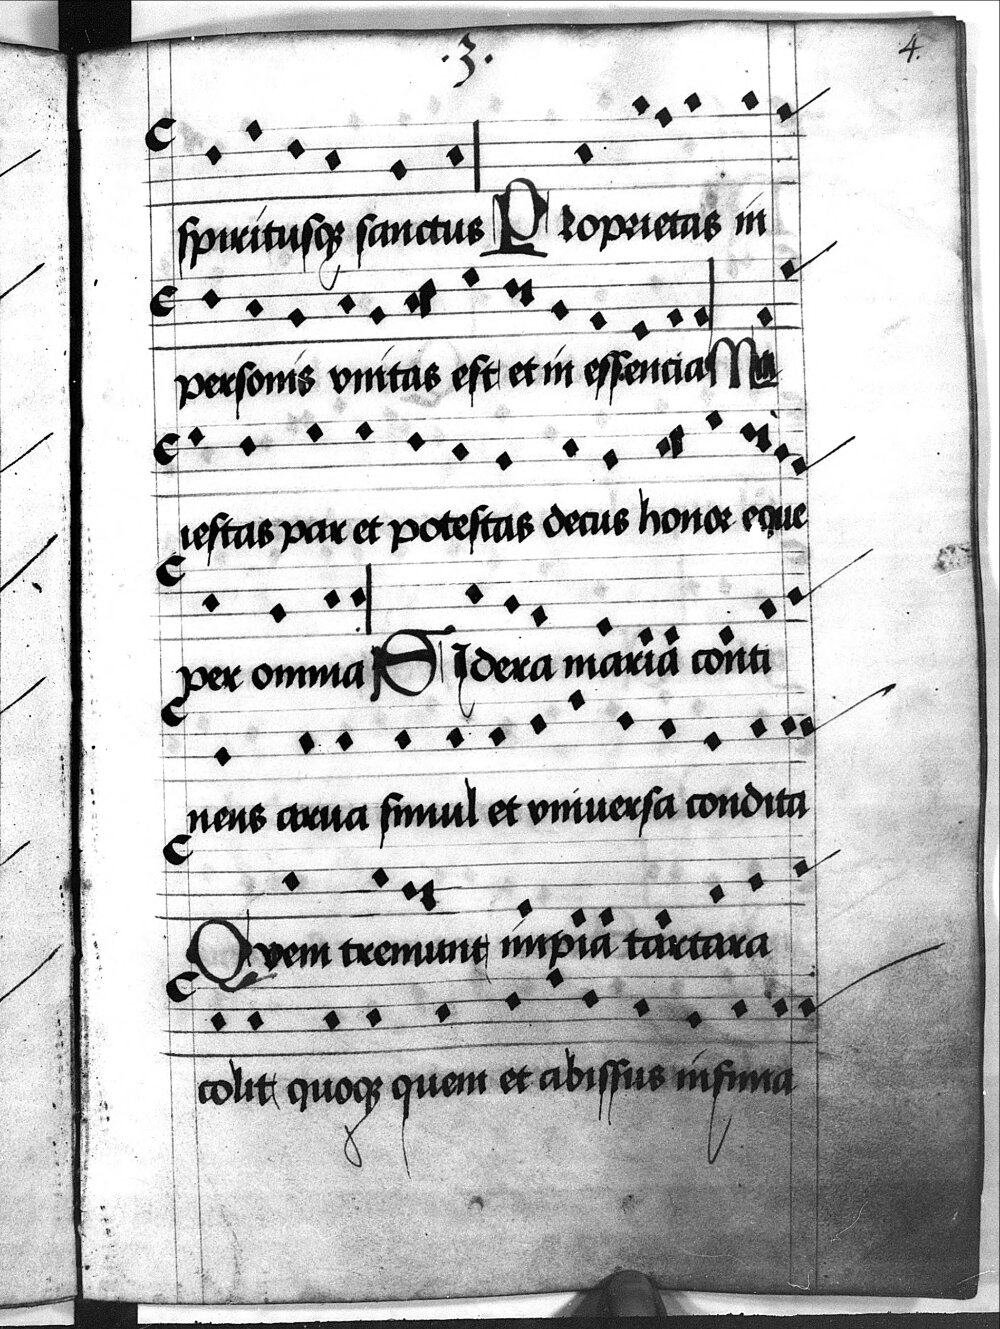 .3.
4.
spiritusqꝫ sanctus Proprietas in
personis vnitas est et in essencia Ma
iestas par et potestas decus honor eque
per omnia Sidera maria conti
nens arua simul et vniuersa condita
Quem tremunt impia tartara
colit quoqꝫ quem et abissus infima